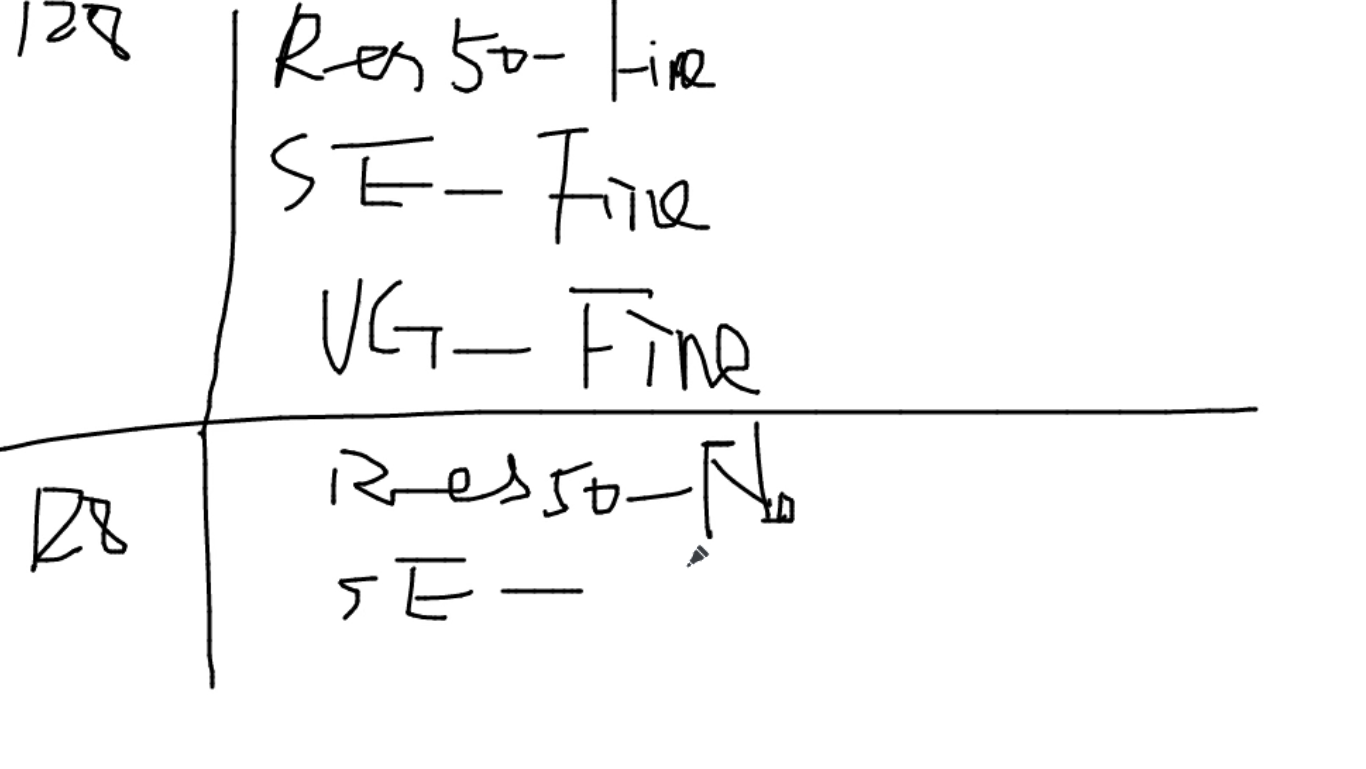 128
Res 50 - Fine
SE - Fine
VG - Fine
128
Res 50 - No
SE -